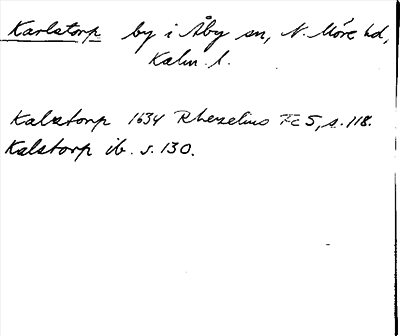 Karlstorp by i Åby sn, N. Möre hd,
Kalm. l.
Kalstorp 1634 Rhezelius Fc 5, s. 118.
Kalstorp ib. s. 130.